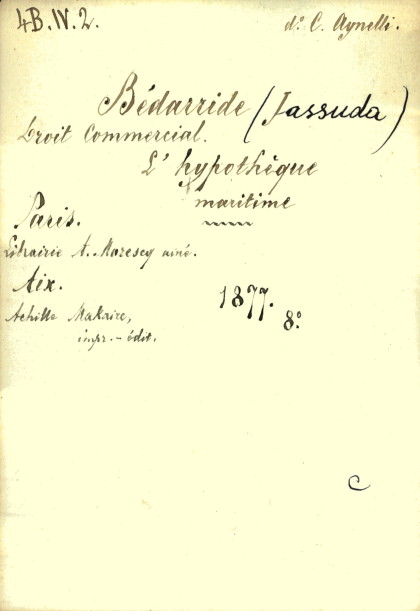 4B.IV.2. d: C. Agnelli.
Bédarride (Jassuda)
Droit Commercial.
L'hypothèque
maritime
Paris.
Librairie A. Marescq ainé.
Aix.
1877.
8°
Achille Makaire,
impr. - édit.
C